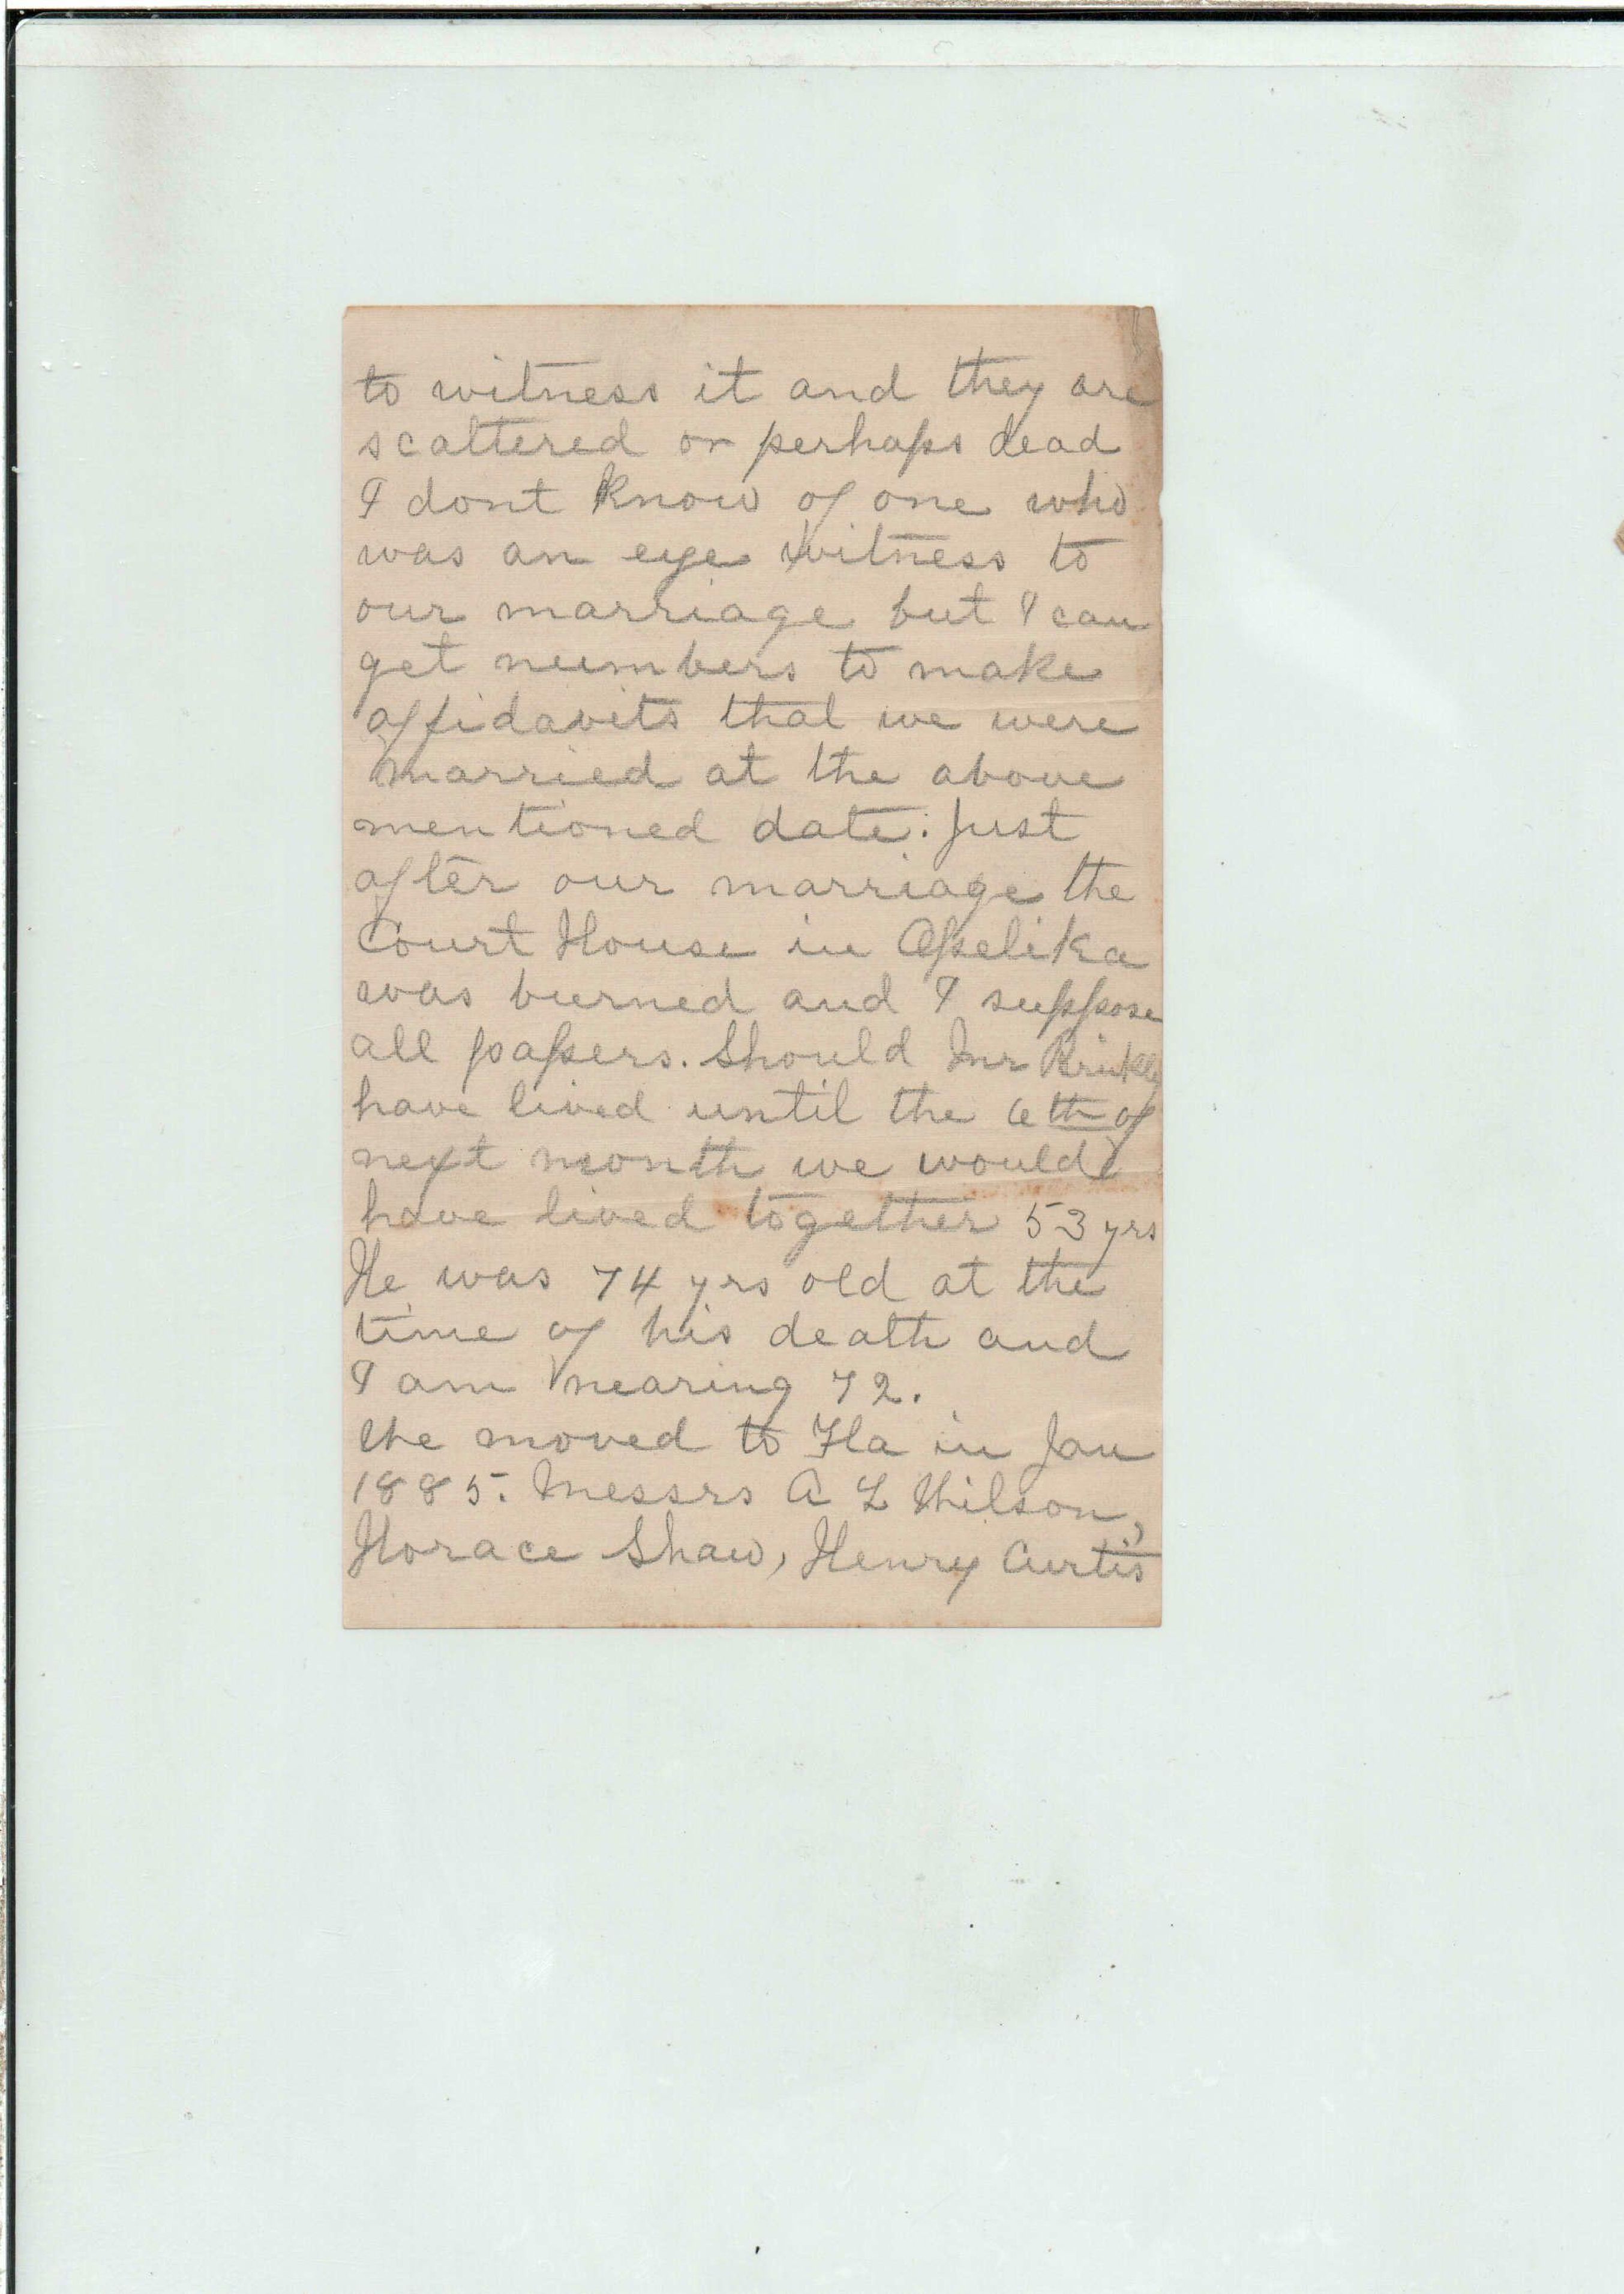 to witness it and they are
scattered or perhaps dead
I dont know of one who
was an eye witness to
our marriage but I can
get numbers to make
affidavits that we were
married at the above
mentioned date. Just
after our marriage the
Court House in Opelika
was burned and I suppose
all papers. Should Mr
have lived until the 6th of
next month we would
have lived together 53 yrs
He was 74 yrs old at the
time of his death and
I am nearing 72.
We moved to Fla in Jan
1885. Messrs A L Wilson,
Horace Shaw, Henry Curtis